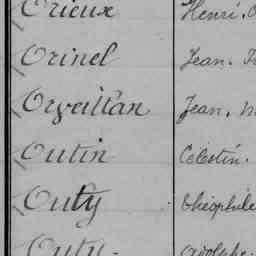 Orieux Henri.
Orinel Jean.
Orveillan Jean.
Outin Célestin.
Outy Théophile
Outy. Adolphe.